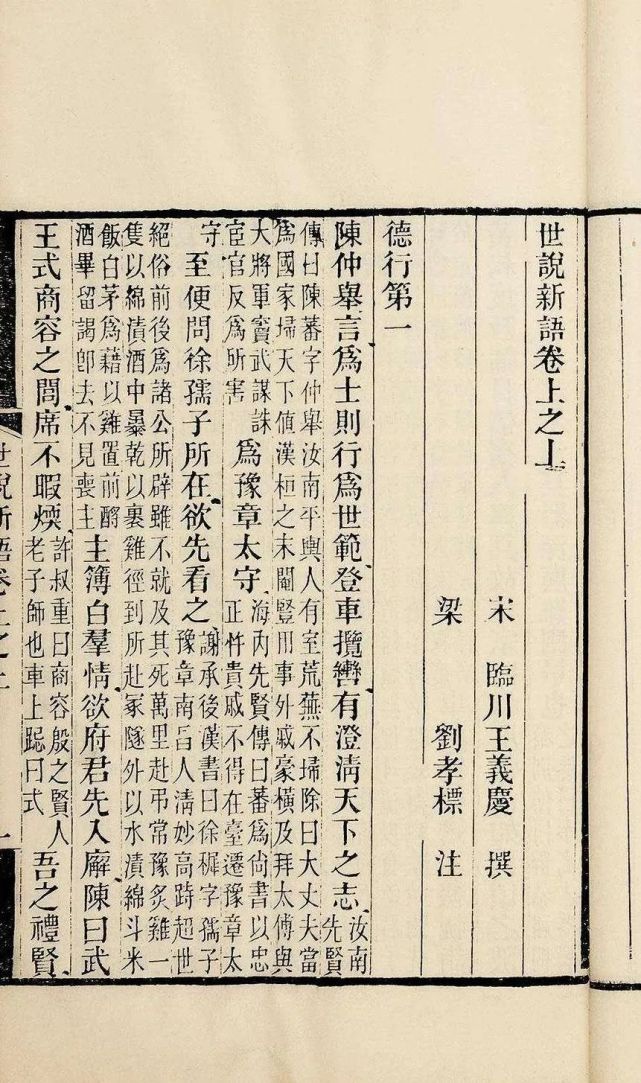 世說新語卷上之上
宋 臨川王義慶 撰
梁 劉孝標 注
德行第一
陳仲舉言爲士則行爲世範登車攬轡有澄淸天下之志汝南先賢
傳曰陳蕃字仲舉汝南平輿人有室荒蕪不埽除曰大丈夫當
爲國家埽天下值漢桓之末閹豎用事外戚豪橫及拜太傅與
大將軍竇武謀誅宦官反爲所害爲豫章太守海內先賢傳曰蕃爲尙書以忠正忤貴戚不得在臺遷豫章太
守至便問徐孺子所在欲先看之謝承後漢書曰徐穉字孺子豫章南昌人淸妙高跱超世
絕俗前後爲諸公所辟雖不就及其死萬里赴弔常豫炙雞一
隻以綿漬酒中暴乾以裹雞徑到所赴冢隧外以水漬綿斗米
飯白茅爲藉以雞置前酹酒畢留謁卽去不見喪主主簿白羣情欲府君先入廨陳曰武
王式商容之閭席不暇煖許叔重曰商容殷之賢人老子師也車上跽曰式吾之禮賢
世說新語卷上之上 一